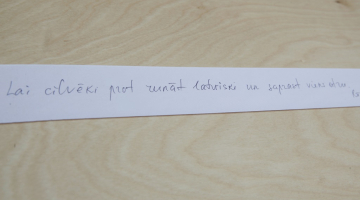 Lai cilvēki prot runāt latviski un saprast viens otru